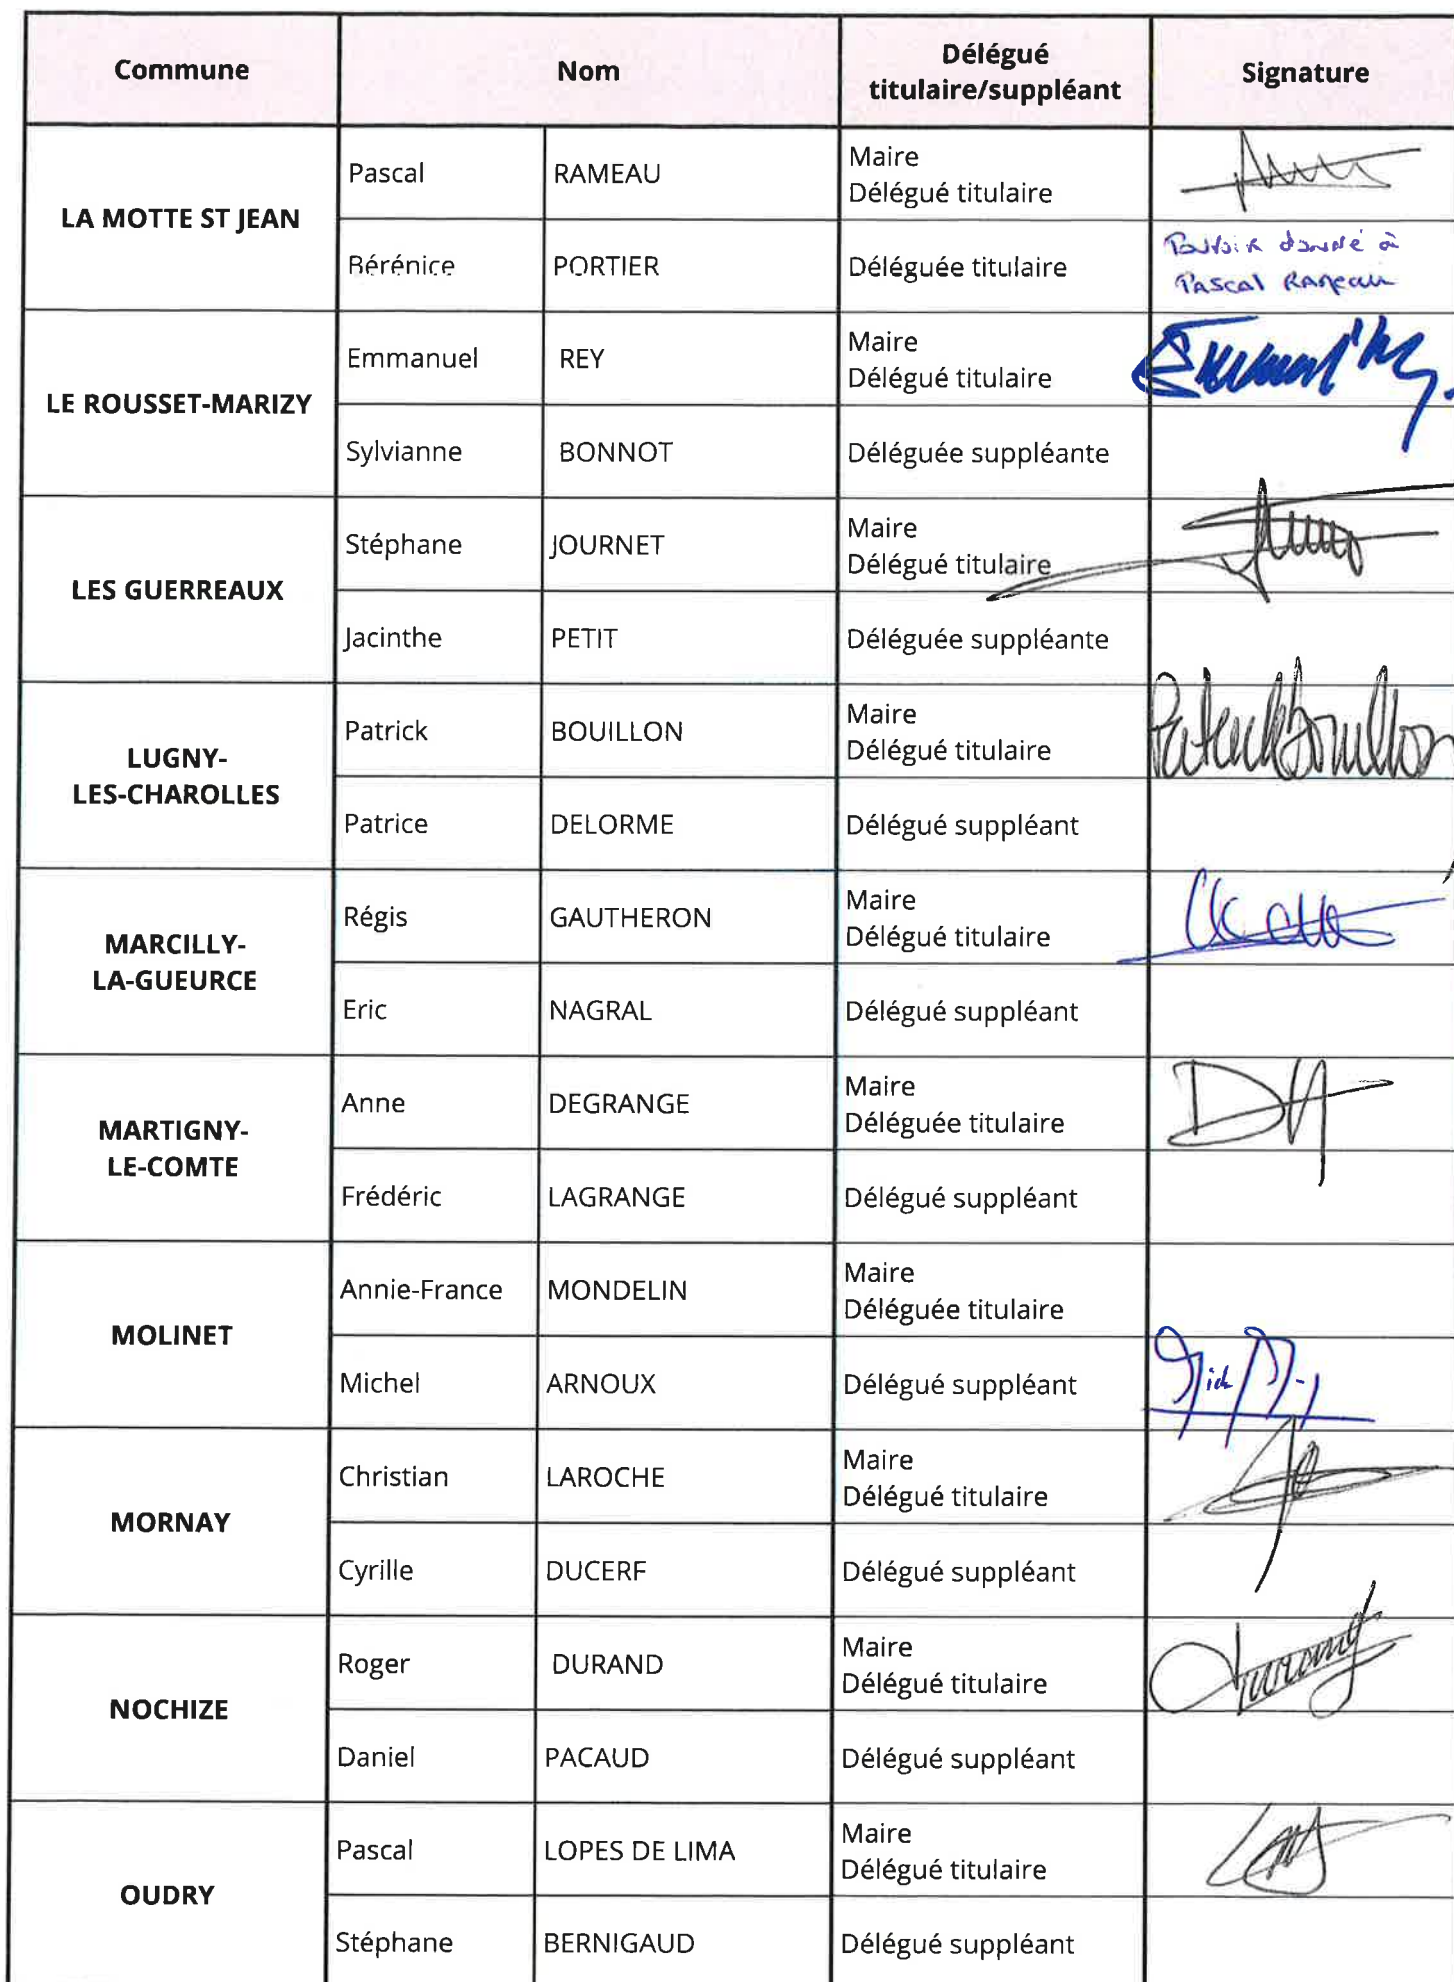 Commune Nom Délégué titulaire/suppléant Signature
LA MOTTE ST JEAN
Pascal RAMEAU Maire
Délégué titulaire
Bérénice PORTIER Déléguée titulaire Pouvoir donné à
Pascal Rameau
LE ROUSSET-MARIZY
Emmanuel REY Maire
Délégué titulaire
Sylvianne BONNOT Déléguée suppléante
LES GUERREAUX
Stéphane JOURNET Maire
Délégué titulaire
Jacinthe PETIT Déléguée suppléante
LUGNY-
LES-CHAROLLES
Patrick BOUILLON Maire
Délégué titulaire
Patrick Bouillon
Patrice DELORME Délégué suppléant
MARCILLY-
LA-GUEURCE
Régis GAUTHERON Maire
Délégué titulaire
Eric NAGRAL Délégué suppléant
MARTIGNY-
LE-COMTE
Anne DEGRANGE Maire
Déléguée titulaire
Frédéric LAGRANGE Délégué suppléant
MOLINET
Annie-France MONDELIN Maire
Déléguée titulaire
Michel ARNOUX Délégué suppléant
MORNAY
Christian LAROCHE Maire
Délégué titulaire
Cyrille DUCERF Délégué suppléant
NOCHIZE
Roger DURAND Maire
Délégué titulaire
Daniel PACAUD Délégué suppléant
OUDRY
Pascal LOPES DE LIMA Maire
Délégué titulaire
Stéphane BERNIGAUD Délégué suppléant